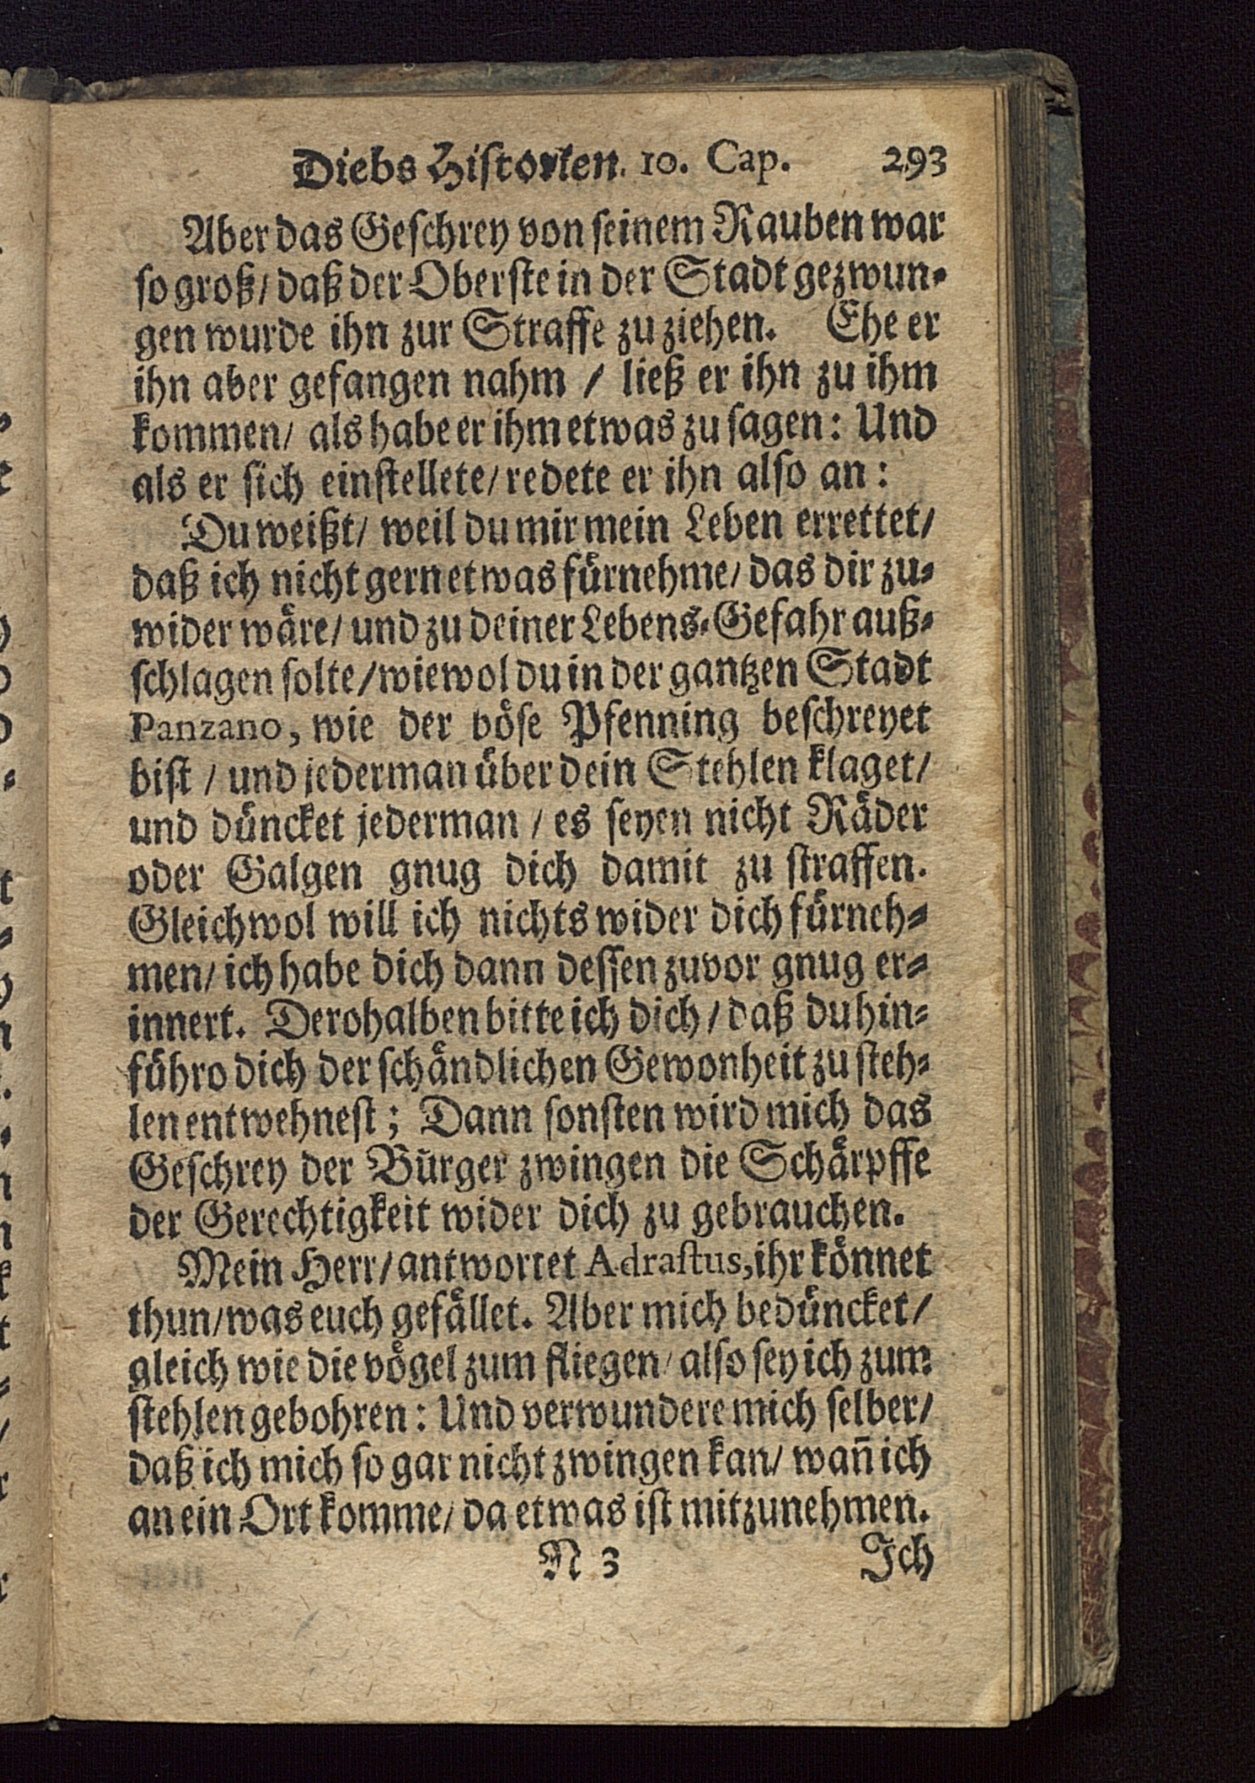 Diebs Historien. 10. Cap. 293
Aber das Geschrey von seinem Rauben war
so groß/ daß der Oberste in der Stadt gezwun-
gen wurde ihn zur Straffe zu ziehen. Ehe er
ihn aber gefangen nahm / ließ er ihn zu ihm
kommen/ als habe er ihm etwas zu sagen: Und
als er sich einstellete/ redete er ihn also an:
Du weißt/ weil du mir mein Leben errettet/
daß ich nicht gern etwas fürnehme/ das dir zu-
wider wäre/ und zu deiner Lebens-Gefahr auß-
schlagen solte/ wiewol du in der gantzen Stadt
Panzano, wie der böse Pfenning beschreyet
bist / und jederman über dein Stehlen klaget/
und düncket jederman / es seyen nicht Räder
oder Galgen gnug dich damit zu straffen.
Gleichwol will ich nichts wider dich fürneh-
men/ ich habe dich dann dessen zuvor gnug er-
innert. Derohalben bitte ich dich / daß du hin-
führo dich der schändlichen Gewonheit zu steh-
len entwehnest; Dann sonsten wird mich das
Geschrey der Bürger zwingen die Schärpffe
der Gerechtigkeit wider dich zu gebrauchen.
Mein Herr/ antwortet Adrastus, ihr könnet
thun/ was euch gefället. Aber mich bedüncket/
gleich wie die vögel zum fliegen/ also sey ich zum
stehlen gebohren: Und verwundere mich selber/
daß ich mich so gar nicht zwingen kan/ wañ ich
an ein Ort komme/ da etwas ist mitzunehmen.
N 3 Ich